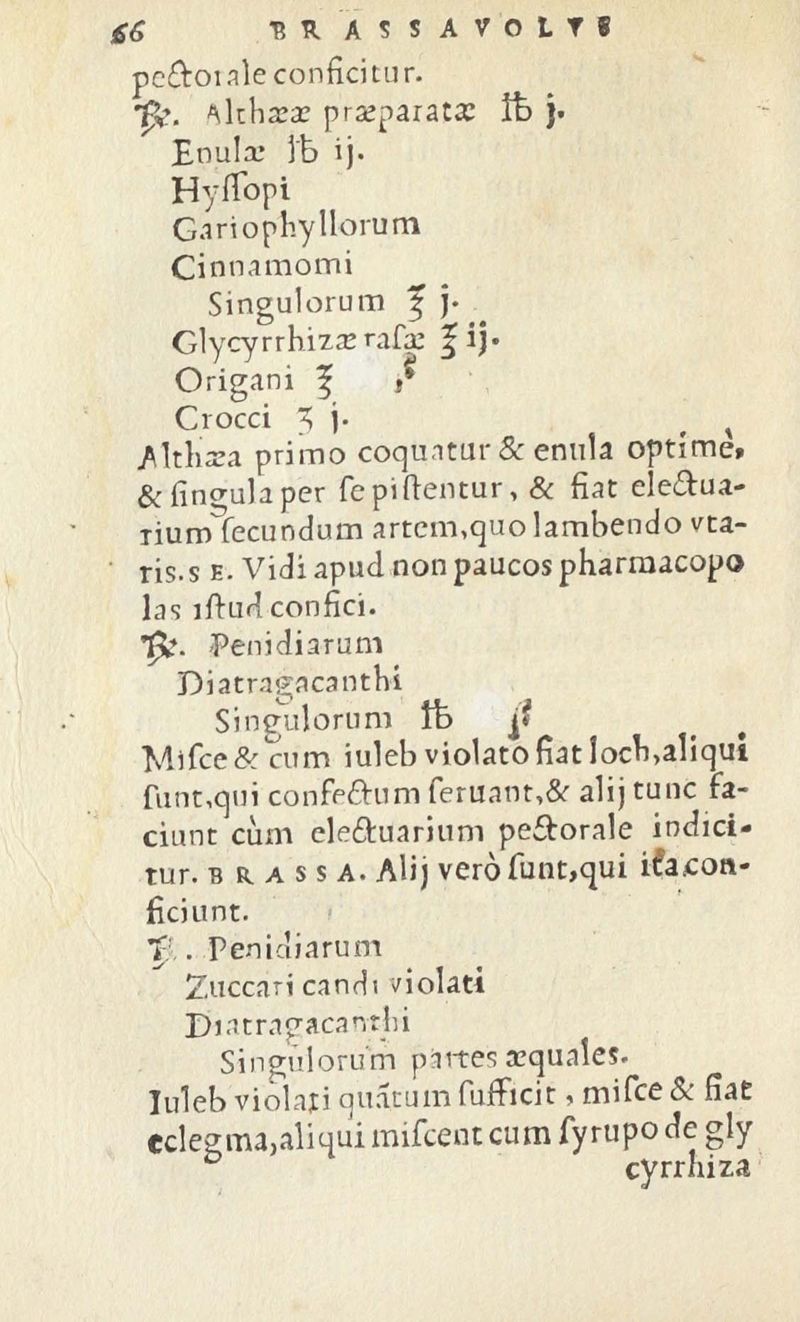 66 BRASSAVOLVS
pectorale conficitur.
℞. Althææ præparatæ ℔ j.
Enulæ ℔ ij.
Hyſſopi
Gariophyllorum
Cinnamomi
Singulorum ℥ j.
Glycyrrhizæ raſæ ℥ ij.
Origani ℥ ß
Crocci ʒ j.
Althæa primo coquatur & enula optimè,
& ſingula per ſe piſtentur, & fiat electua-
rium ſecundum artem,quo lambendo vta-
ris.s E. Vidi apud non paucos pharmacopo
las iſtud confici.
℞. Penidiarum
Diatragacanthi
Singulorum ℔ ß
Miſce & cum iuleb violato fiat loch,aliqui
ſunt,qui confectum ſeruant,& alij tunc fa-
ciunt cùm electuarium pectorale indici-
tur. BRASSA. Alij verò ſunt,qui ita con-
ficiunt.
℞. Penidiarum
Zuccari candi violati
Diatragacanthi
Singulorum partes æquales.
Iuleb violati quãtum ſufficit, miſce & fiat
eclegma,aliqui miſcent cum ſyrupo de gly
cyrrhiza